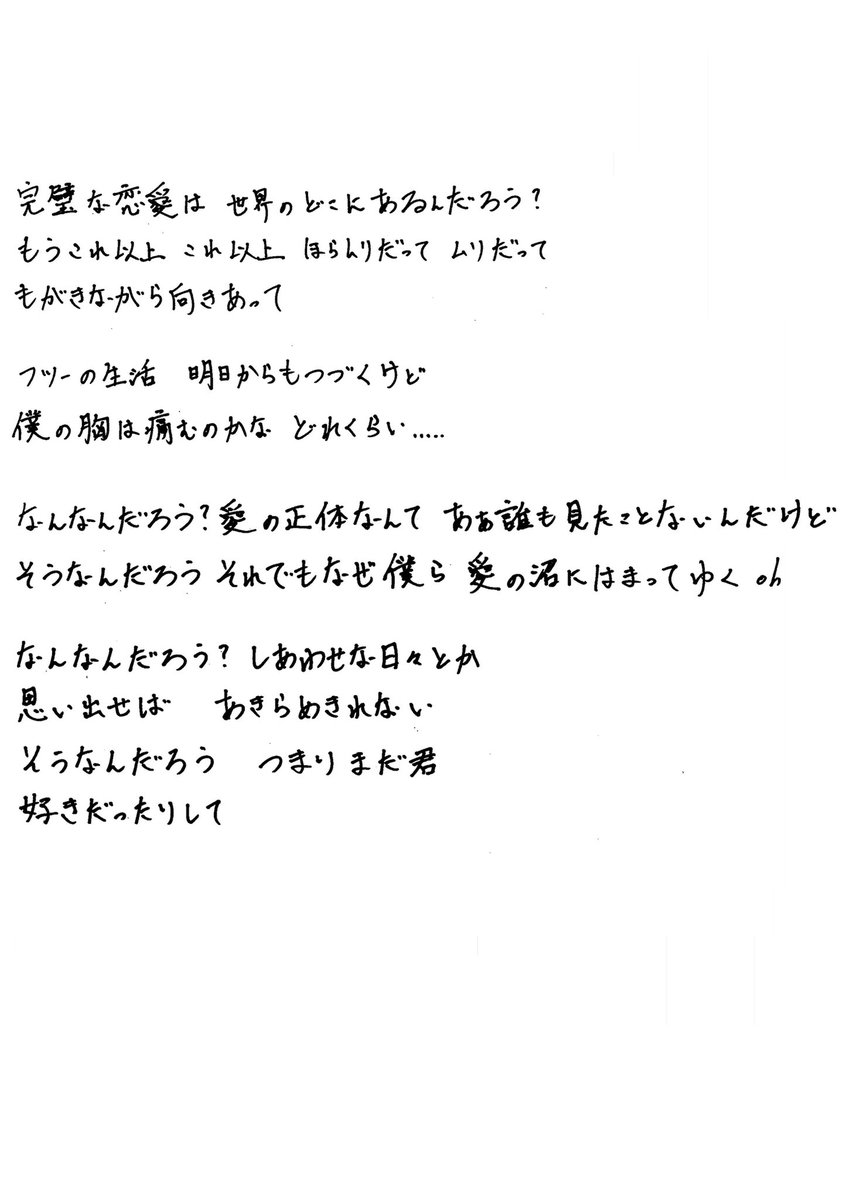 完璧な恋愛は 世界のどこにあるんだろう?
もうこれ以上 これ以上 ほらムリだって ムリだって
もがきながら向きあって
フツーの生活 明日からもつづくけど
僕の胸は痛むのかな どれくらい.....
なんなんだろう?愛の正体なんて あぁ誰も見たことないんだけど
そうなんだろう それでもなぜ僕ら 愛の沼にはまってゆく oh
なんなんだろう? しあわせな日々とか
思い出せば あきらめきれない
そうなんだろう つまりまだ君
好きだったりして